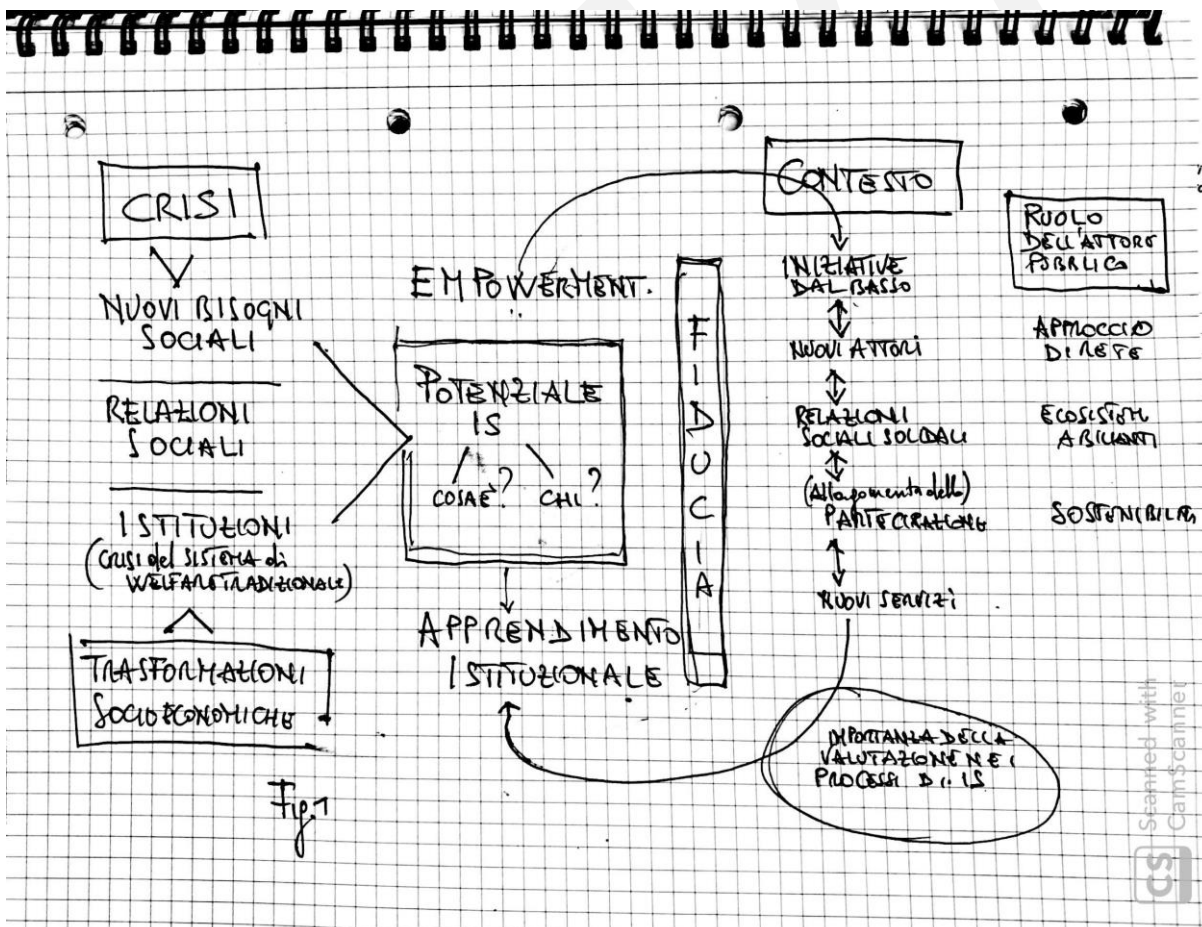 CRISI
NUOVI BISOGNI
SOCIALI
RELAZIONI
SOCIALI
ISTITUZIONI
(CRISI del SISTEMA di
WELFARE TRADIZIONALE)
TRASFORMAZIONI
SOCIOECONOMICHE
Fig. 1
EMPOWERMENT.
POTENZIALE
IS
COSA È? CHI?
APPRENDIMENTO
ISTITUZIONALE
F
I
D
U
C
I
A
CONTESTO
INIZIATIVE
DAL BASSO
NUOVI ATTORI
RELAZIONI
SOCIALI SOLIDALI
(Allargamento della)
PARTECIPAZIONE
NUOVI SERVIZI
IMPORTANZA DELLA
VALUTAZIONE NEI
PROCESSI DI IS
RUOLO
DELL'ATTORE
PUBBLICO
APPROCCIO
DI RETE
ECOSISTEMI
ABILITANTI
SOSTENIBILITÀ
CS Scanned with
CamScanner